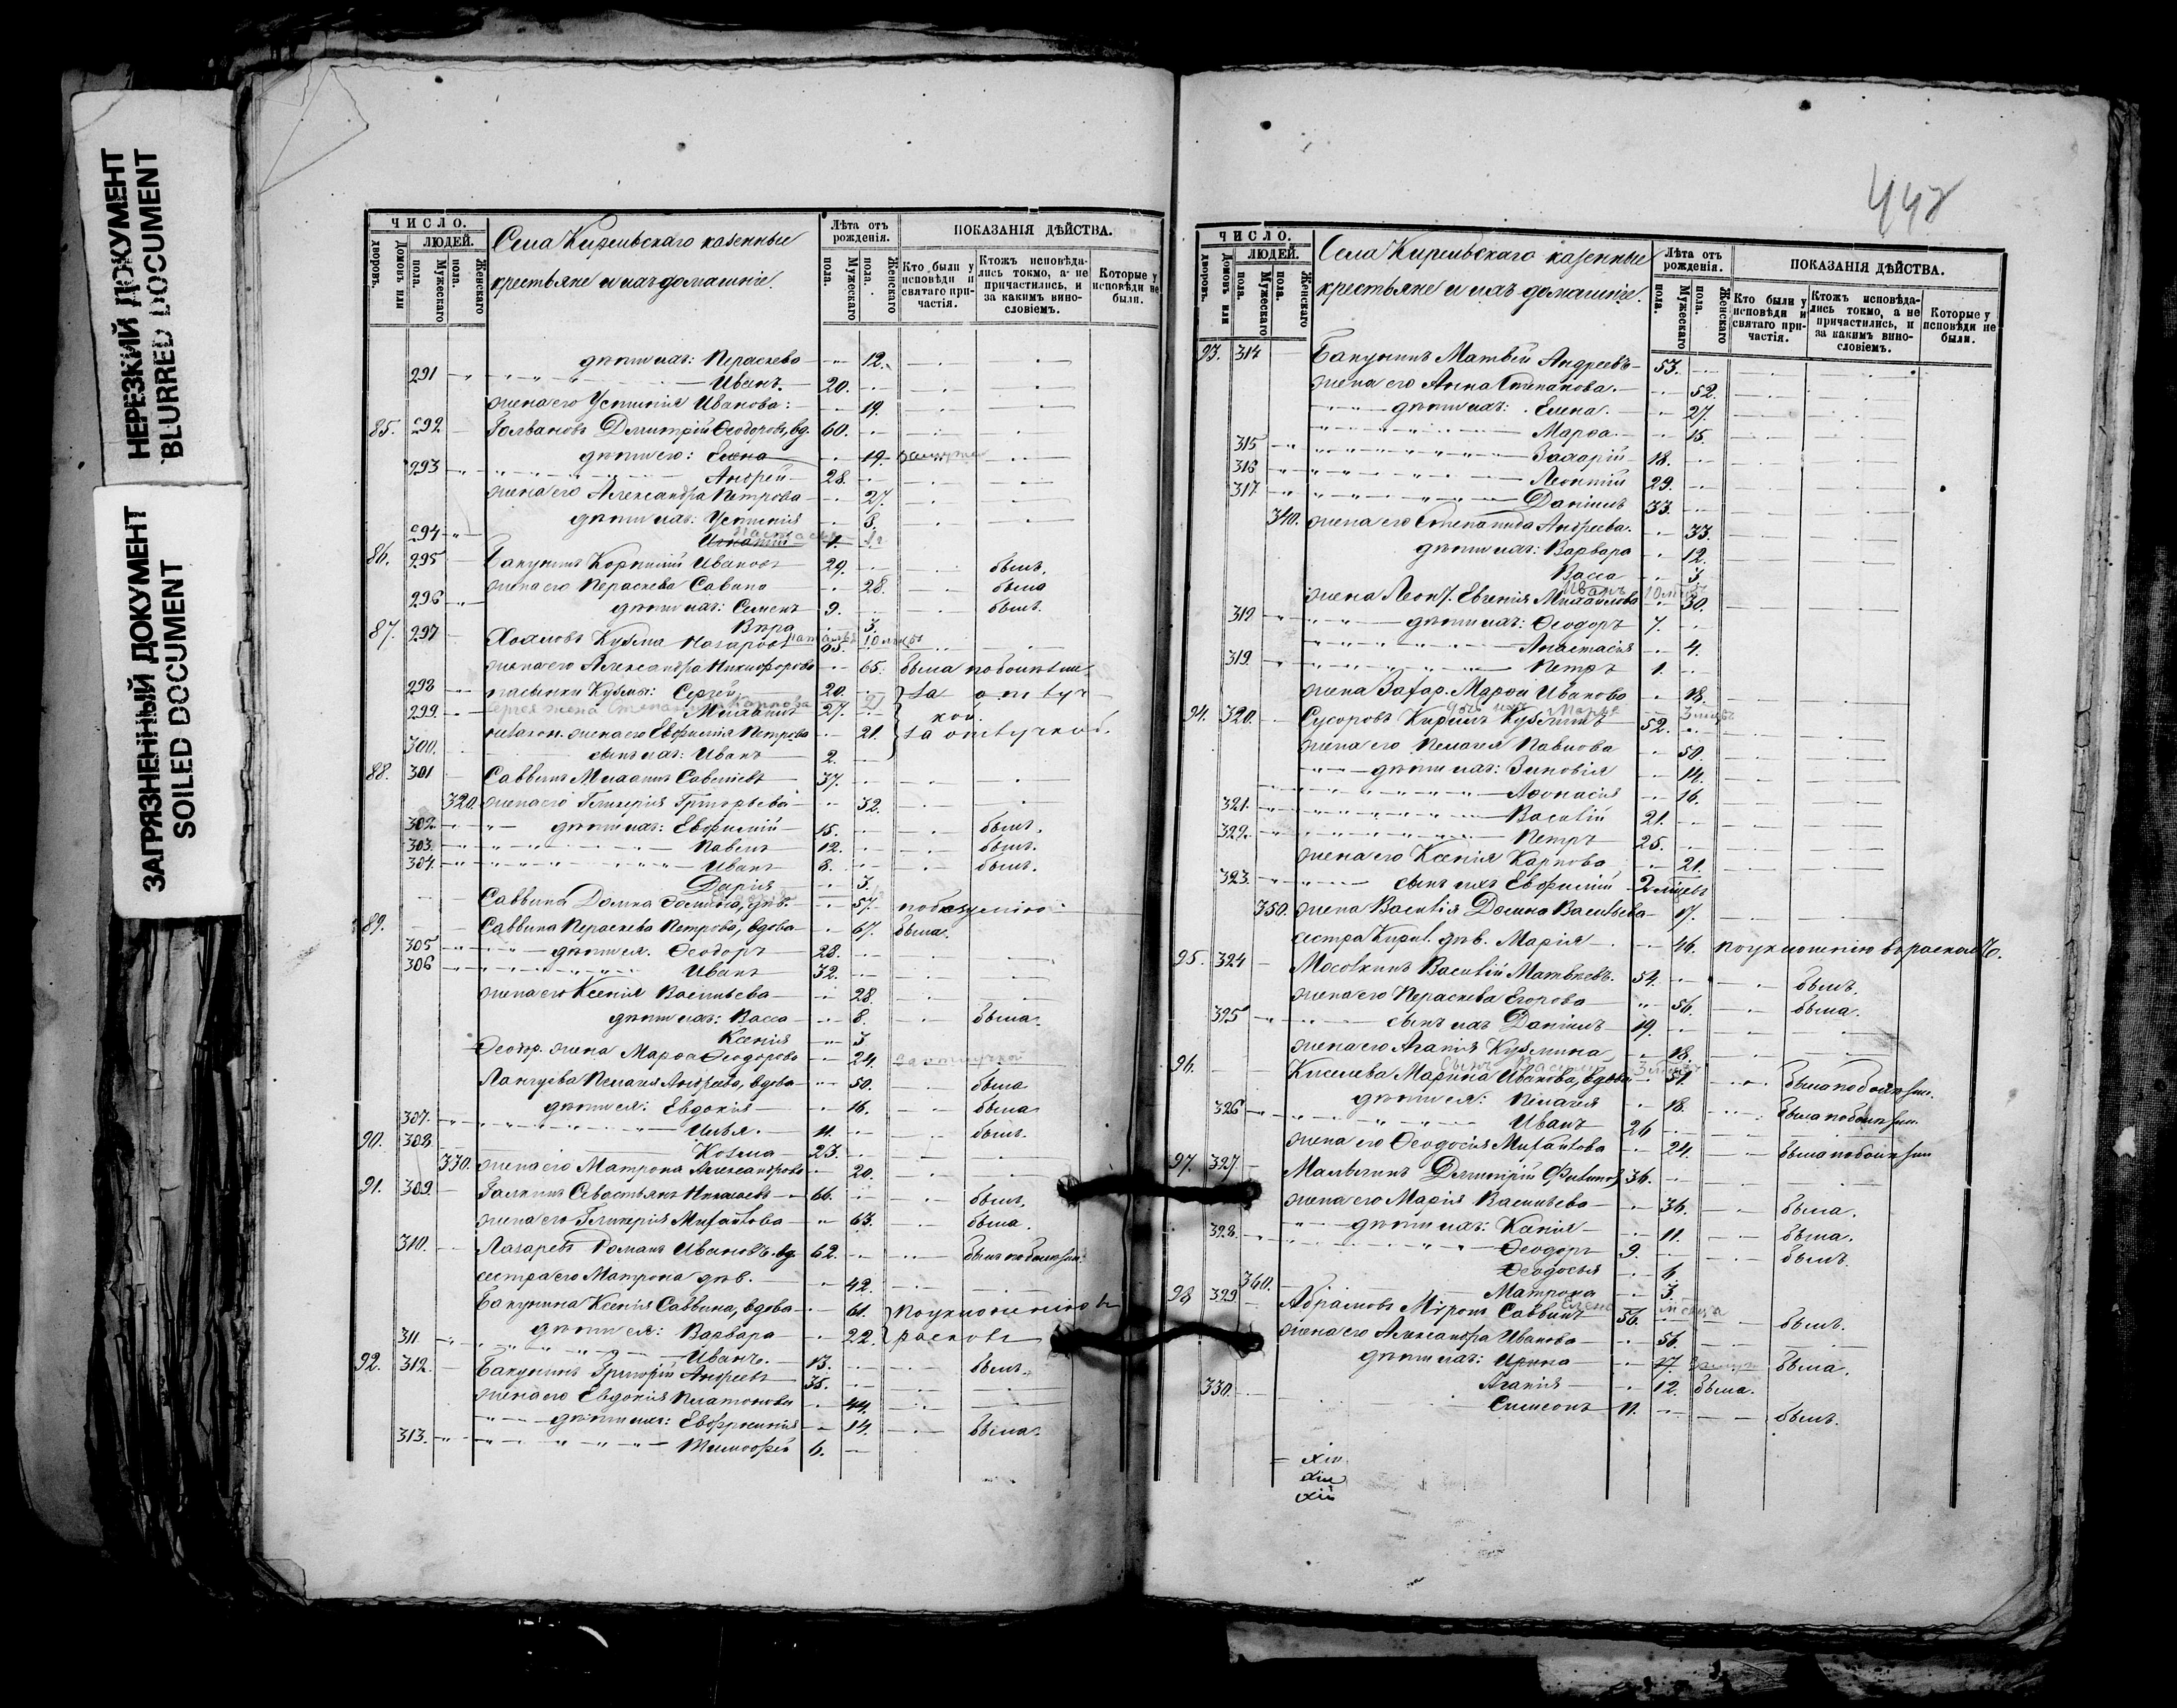 НЕРЕЗКИЙ ДОКУМЕНТ
BLURRED DOCUMENT
ЗАГРЯЗНЕННЫЙ ДОКУМЕНТ
SOILED DOCUMENT
ЧИСЛО.
ЛЮДЕЙ.
дворовъ.
Домовъ или
Мужескаго пола.
Женскаго пола.
Села Кирельскаго казенные
крестьяне и ихъ домашніе.
Лѣта отъ рожденія.
Мужескаго пола.
Женскаго пола.
ПОКАЗАНІЯ ДѢЙСТВА.
Кто были у исповѣди и святаго причастія.
Ктожъ исповѣдались токмо, а не причастились, и за какимъ винословіемъ.
Которые у исповѣди не были.
дѣти ихъ: Параскева 12.
291 Иванъ 20.
жена его Устинія Иванова: 19.
85. 292 Дмитрій Ѳеодоровъ, вд. 60.
дѣти его: Елена 19.
293 Андрей 28.
жена его Александра Петрова 27.
дѣти ихъ: Устинія 3.
294 Игнатій 1.
86. 295 Бакунинъ Корнилій Ивановъ 29. былъ.
жена его Параскева Савина 28. была
296 дѣти ихъ: Семенъ 9. былъ.
Вѣра 3.
87. 297 Кузма Назаровъ 65.
жена его Александра Никифорова 65. была
298 пасынки Кузмы: Сергей 20. за отлуч
299 Михаилъ 27. кой.
жена его Евфимія Петрова 21. за отлучкой.
300. сынъ ихъ: Иванъ 2.
88. 301 Саввинъ Михаилъ Савельевъ 37.
320. жена его Гликерія Григорьева 32.
302 дѣти ихъ: Евфимій 15. былъ.
303 Павелъ 12. былъ.
304 Иванъ 8. былъ.
Дарія 3.
Саввина Домна 57.
89. Саввина Параскева Петрова, вдова 67. была.
305 дѣти ея: Ѳеодоръ 28.
306 Иванъ 32.
жена его Ксенія Васильева 28.
дѣти ихъ: Васса 8. была.
Ксенія 3
Ѳеодор. жена Марѳа Ѳеодорова 24. за отлучкой
Пелагея Андреева, вдова 50. была
дѣти ея: Евдокія 16. была
307. Илья. 11. былъ.
90. 308 Козма 23.
330. жена его Матрона Александрова 20.
91. 309. Галкинъ Севастьянъ Николаевъ 66. былъ.
жена его Гликерія Михайлова 63. была.
310. Лазаревъ Романъ Ивановъ. вд. 62.
сестра его Матрона дѣв. 42.
Бакунина Ксенія Саввина, вдова 61. по уклоненію въ
дѣти ея: Варвара 22. расколъ
311 Иванъ. 13. былъ.
92. 312. Бакунинъ Григорій Андреевъ 35.
жена его Евдокія Платонова 44.
дѣти ихъ: Евфросинія 14. была.
313. Тимоѳей 6.
442
ЧИСЛО.
ЛЮДЕЙ.
дворовъ.
Домовъ или
Мужескаго пола.
Женскаго пола.
Села Кирельскаго казенные
крестьяне и ихъ домашніе.
Лѣта отъ рожденія.
Мужескаго пола.
Женскаго пола.
ПОКАЗАНІЯ ДѢЙСТВА.
Кто были у исповѣди и святаго причастія.
Ктожъ исповѣдались токмо, а не причастились, и за какимъ винословіемъ.
Которые у исповѣди не были.
93. 314 Бакунинъ Матвѣй Андреевъ 53.
жена его Анна Степанова. 52.
дѣти ихъ: Елена. 27.
Марѳа. 15.
315 Захарій 18.
316 Леонтій 29.
317 Даніилъ 33.
340. жена его Степанида Андреева. 33.
дѣти ихъ: Варвара 12.
Васса 3
жена Леон. Евгенія Михайлова 30.
312 дѣти ихъ: Ѳеодоръ 7.
Анастасія 4.
319. Петръ 1.
жена Захар. Марѳа Иванова 18.
94. 320. Сусоровъ Кирилъ Кузминъ 52.
жена его Пелагея Павлова 50.
дѣти ихъ: Зиновія 14.
Аѳанасія 16.
321. Василій 21.
322. Петръ 25.
жена его Ксенія Карпова 21.
323. сынъ ихъ Евфимій 2 мѣсяцевъ
350. жена Василія Домна Васильева 17.
сестра Кирил. дѣв. Марія 46. по уклоненію въ расколъ
95. 324 Василій Матвѣевъ. 54. былъ.
жена его Параскева Егорова 56. была.
325 сынъ ихъ Даніилъ 19.
жена его Агапія Кузмина 18.
96. Киселева Марина Иванова, вдова 51. была по болѣзни.
дѣти ея: Пелагея 18. была по болѣзни.
326 Иванъ 26
жена его Ѳеодосія Михайлова 24. была по болѣзни
97. 327 Дмитрій 36.
жена его Марія Васильева 36. была.
дѣти ихъ: Ксенія 11. была.
328. Ѳеодоръ 9. былъ.
Ѳеодосья 6
360. Матрона 3.
98 329 Абрамовъ Миронъ Саввинъ 56. былъ.
жена его Александра Иванова 56.
дѣти ихъ: Ирина 17. была.
Агапія 12. была.
330. Симеонъ 11. былъ.